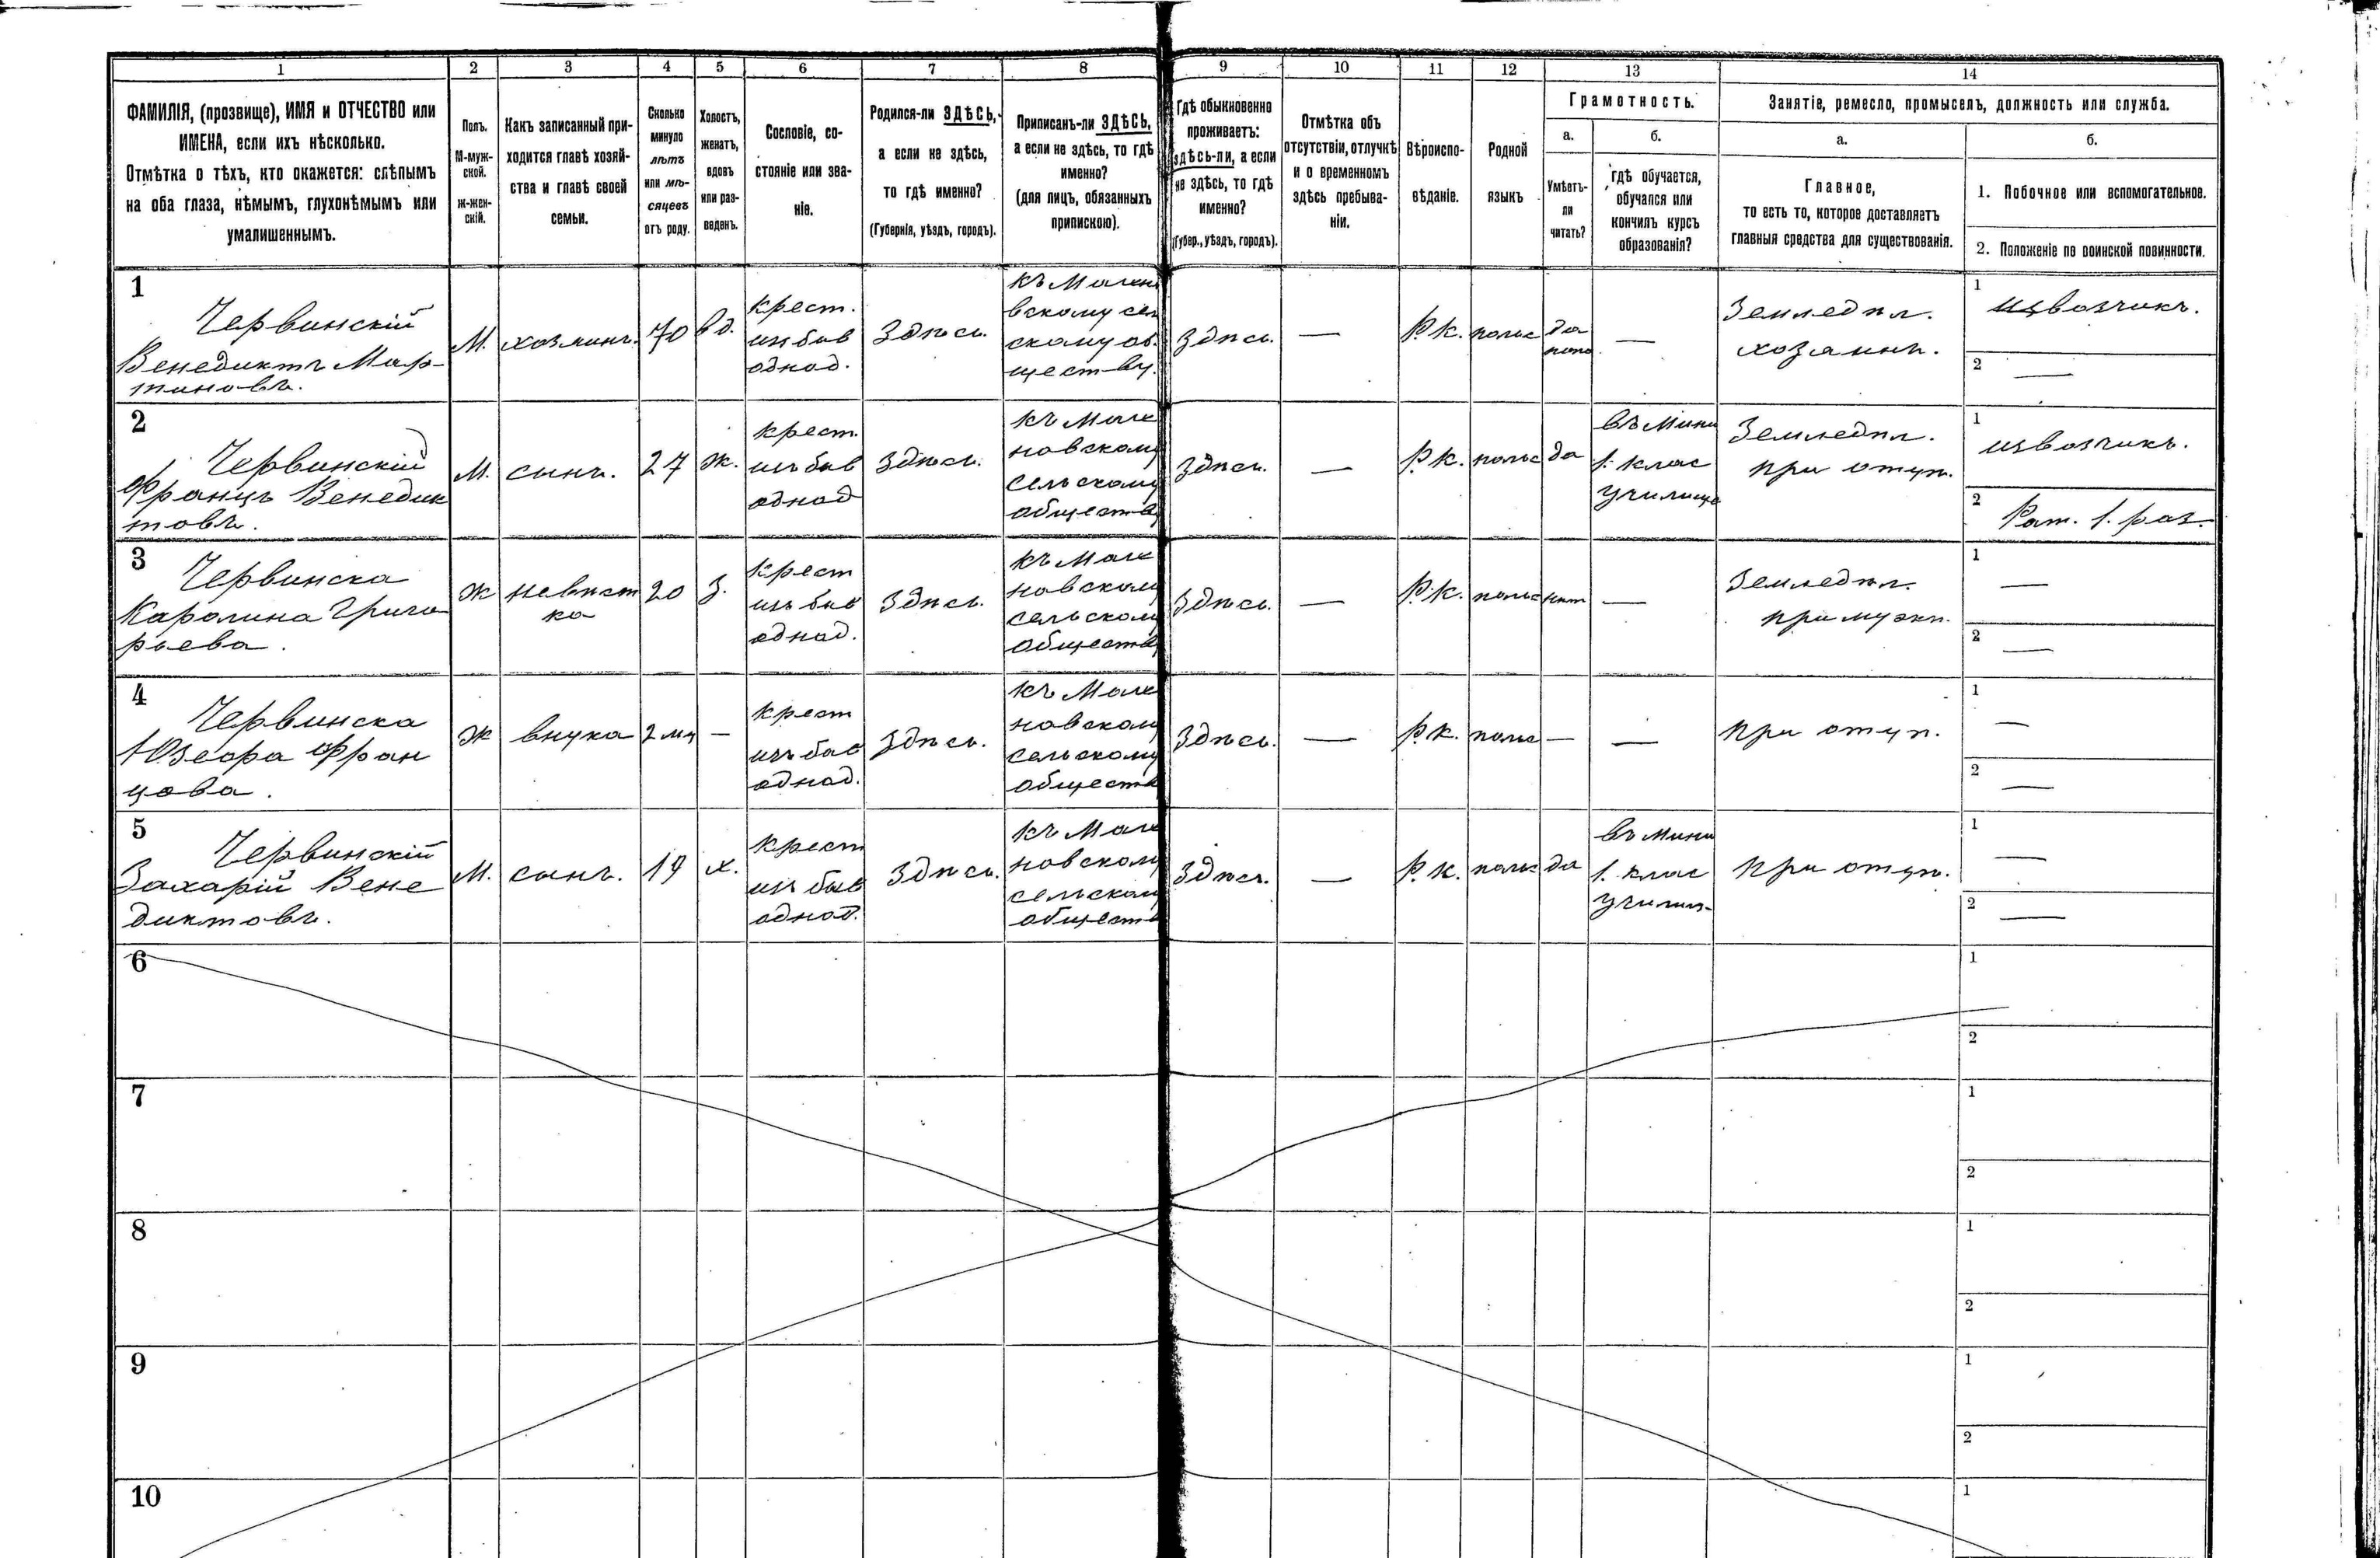 1 2 3 4 5 6 7 8 9 10 11 12 13 14
ФАМИЛІЯ, (прозвище), ИМЯ и ОТЧЕСТВО или
ИМЕНА, если ихъ нѣсколько.
Отмѣтка о тѣхъ, кто окажется: слѣпымъ
на оба глаза, нѣмымъ, глухонѣмымъ или
умалишеннымъ.
Полъ.
М-муж-
ской.
Ж-жен-
скій.
Какъ записанный при-
ходится главѣ хозяй-
ства и главѣ своей
семьи.
Сколько
минуло
лѣтъ
или мѣ-
сяцевъ
отъ роду.
Холостъ,
женатъ,
вдовъ
или раз-
веденъ.
Сословіе, со-
стояніе или зва-
ніе.
Родился-ли ЗДѢСЬ,
а если не здѣсь,
то гдѣ именно?
(Губернія, уѣздъ, городъ).
Приписанъ-ли ЗДѢСЬ,
а если не здѣсь, то гдѣ
именно?
(для лицъ, обязанныхъ
припискою).
Гдѣ обыкновенно
проживаетъ:
здѣсь-ли, а если
не здѣсь, то гдѣ
именно?
(Губер., уѣздъ, городъ).
Отмѣтка объ
отсутствіи, отлучкѣ
и о временномъ
здѣсь пребыва-
ніи.
Вѣроиспо-
вѣданіе.
Родной
языкъ
Грамотность.
а.
Умѣетъ-
ли
читать?
б.
гдѣ обучается,
обучался или
кончилъ курсъ
образованія?
Занятіе, ремесло, промыселъ, должность или служба.
а.
Главное,
то есть то, которое доставляетъ
главныя средства для существованія.
б.
1. Побочное или вспомогательное.
2. Положеніе по воинской повинности.
1
Червинскій
Венедиктъ Мар-
тиновъ.
М.
хозяинъ.
70
вд.
крест.
изъ быв
однод.
Здѣсь.
вскому сел
скому об-
ществу.
здѣсь.
—
Р.К.
польс
да
—
Земледѣл.
хозяинъ.
1
извозчикъ.
2
—
2
Червинскій
Францъ Венедик
товъ.
М.
сынъ.
27
ж.
крест.
изъ быв
однод
Здѣсь.
новскому
сельскому
обществу
здѣсь.
—
Р.К.
польс
да
въ Мини
1. клас
училище
Земледѣл.
при отцѣ.
1
извозчикъ.
2
Рат. 1. раз.
3
Червинска
Каролина Григо
рьева.
Ж
невѣст
ка
20
З.
крест
изъ быв
однод.
Здѣсь.
новскому
сельскому
обществу
Здѣсь.
—
Р.К.
польс
нѣт
—
Земледѣл.
при мужѣ.
1
—
2
—
4
Червинска
Юзефа Фран
цова.
Ж
внука
2 мц
—
крест
изъ быв
однод.
Здѣсь.
новскому
сельскому
обществ
Здѣсь.
—
Р.К.
польс
—
—
при отцѣ.
1
—
2
—
5
Червинскій
Захарій Вене
диктовъ.
М.
сынъ.
х.
крест
изъ быв
однод.
Здѣсь.
новском
сельском
обществ
Здѣсь.
—
Р.К.
польс
да
въ мини
1. клас
училищ-
при отцѣ.
1
—
2
—
6
1
2
7
1
2
8
1
2
9
1
2
10
1